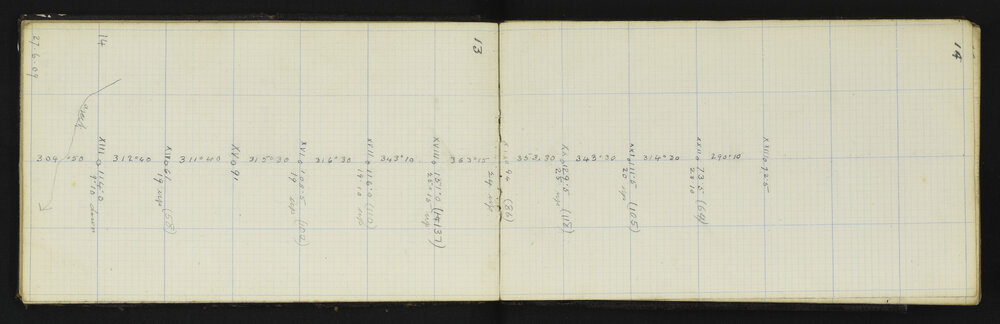 27.6.09
14
13
14
309°50
312°40
311°40
315°30
316°30
343°10
363°15
353.30
343°30
314°20
290°10
XIII 0 116.0
9°10 down
XIV 0 61
19 up (58)
XV 0 91
XVI 0 108.5
19 up (102)
XVII 0 116.0 (110)
19°10 up
XVIII 0 151.0 (137)
25°15 up
94 (86)
24 up
XX 0 129.5 (118)
24 up
XXI 0 111.5 (105)
20 up
XXII 0 73.5 (69)
22°10
XXIII 0 72.5